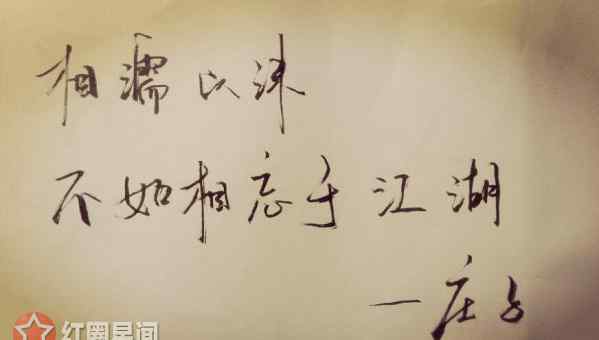 相濡以沫
不如相忘于江湖
—庄子
红圈星间